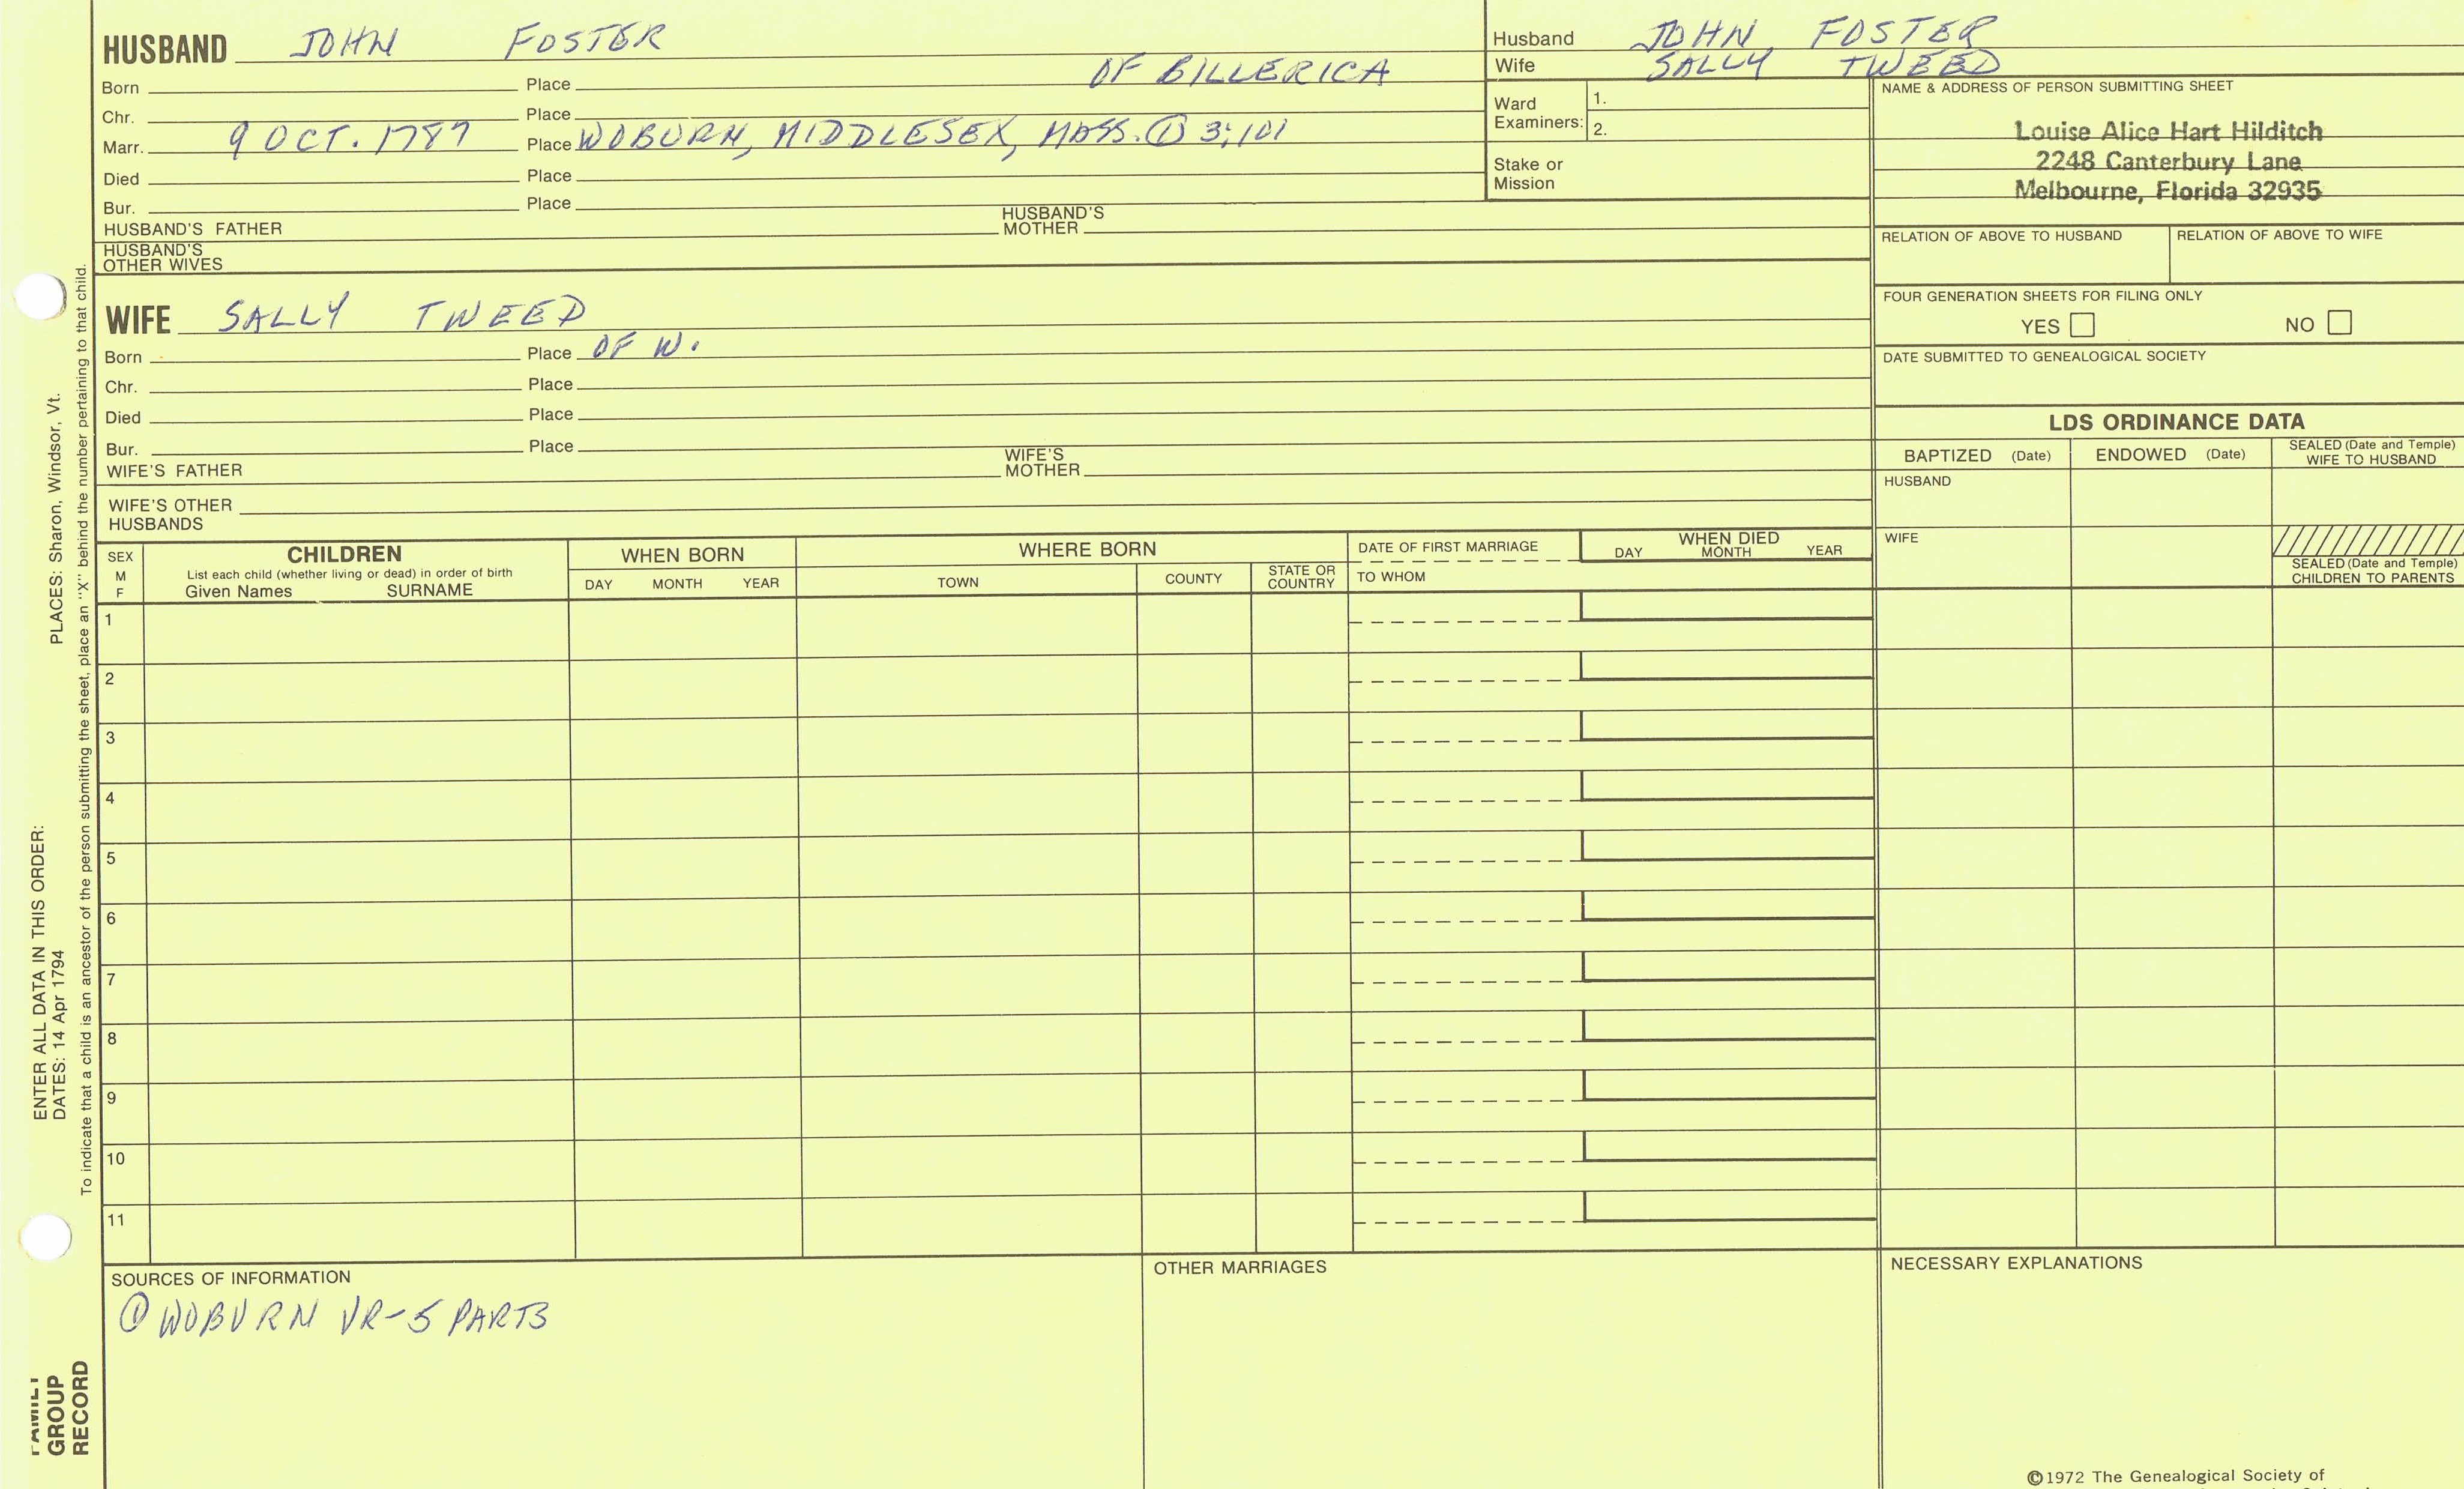 HUSBAND JOHN FOSTER
Born Place OF BILLERICA
Chr. Place
Marr. 9 OCT. 1787 Place WOBURN, MIDDLESEX, MASS. ① 3:101
Died Place
Bur. Place
HUSBAND'S FATHER HUSBAND'S MOTHER
HUSBAND'S
OTHER WIVES
WIFE SALLY TWEED
Born Place OF W.
Chr. Place
Died Place
Bur. Place
WIFE'S FATHER WIFE'S MOTHER
WIFE'S OTHER
HUSBANDS
Husband JOHN FOSTER
Wife SALLY TWEED
Ward
Examiners:
1.
2.
Stake or
Mission
NAME & ADDRESS OF PERSON SUBMITTING SHEET
Louise Alice Hart Hilditch
2248 Canterbury Lane
Melbourne, Florida 32935
RELATION OF ABOVE TO HUSBAND RELATION OF ABOVE TO WIFE
FOUR GENERATION SHEETS FOR FILING ONLY
YES NO
DATE SUBMITTED TO GENEALOGICAL SOCIETY
LDS ORDINANCE DATA
BAPTIZED (Date) ENDOWED (Date) SEALED (Date and Temple)
WIFE TO HUSBAND
HUSBAND
WIFE
SEALED (Date and Temple)
CHILDREN TO PARENTS
SEX
M
F
CHILDREN
List each child (whether living or dead) in order of birth
Given Names SURNAME
WHEN BORN
DAY MONTH YEAR
WHERE BORN
TOWN COUNTY STATE OR
COUNTRY
DATE OF FIRST MARRIAGE
TO WHOM
WHEN DIED
DAY MONTH YEAR
1
2
3
4
5
6
7
8
9
10
11
SOURCES OF INFORMATION
① WOBURN VR-5 PARTS
OTHER MARRIAGES
NECESSARY EXPLANATIONS
©1972 The Genealogical Society of
FAMILY
GROUP
RECORD
ENTER ALL DATA IN THIS ORDER:
DATES: 14 Apr 1794 PLACES: Sharon, Windsor, Vt.
To indicate that a child is an ancestor of the person submitting the sheet, place an "X" behind the number pertaining to that child.